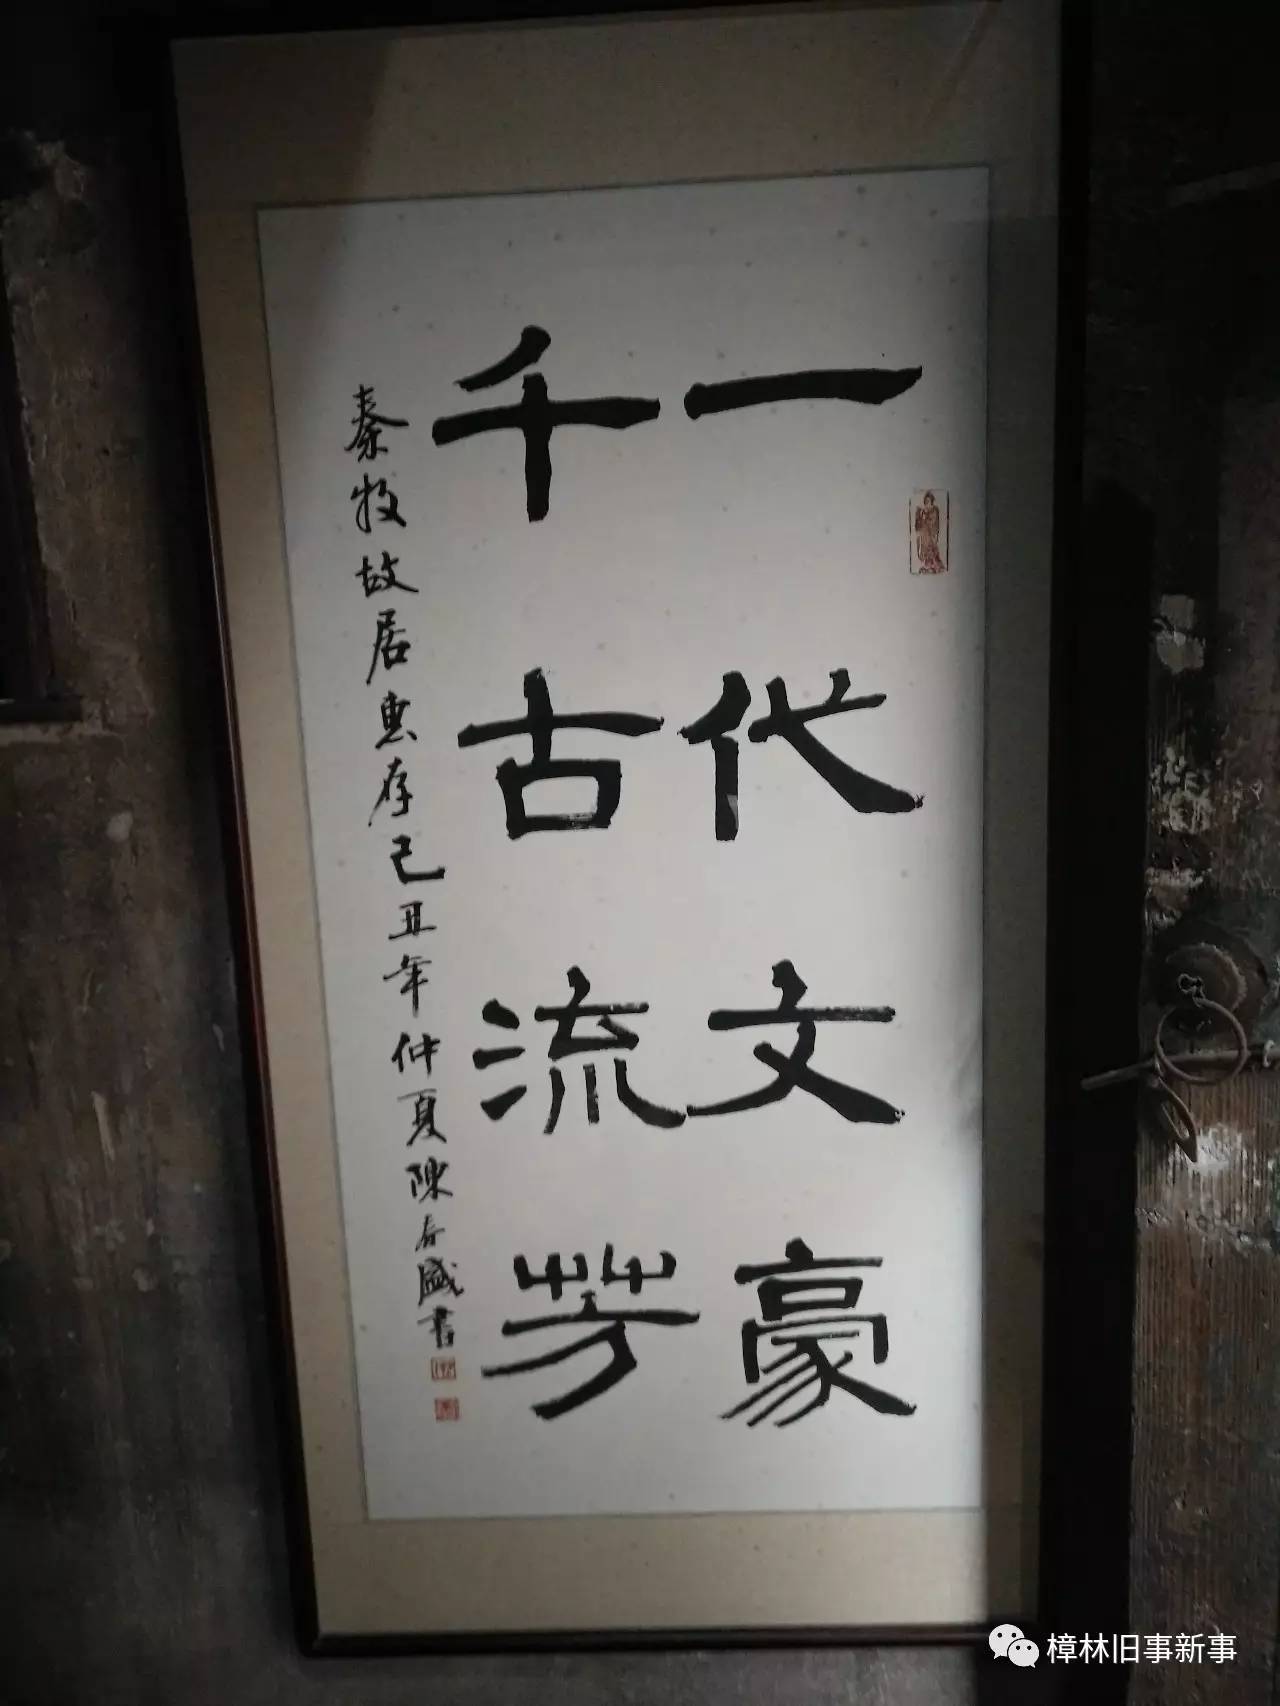 一代文豪
千古流芳
秦牧故居惠存己丑年仲夏陳春盛書
樟林旧事新事